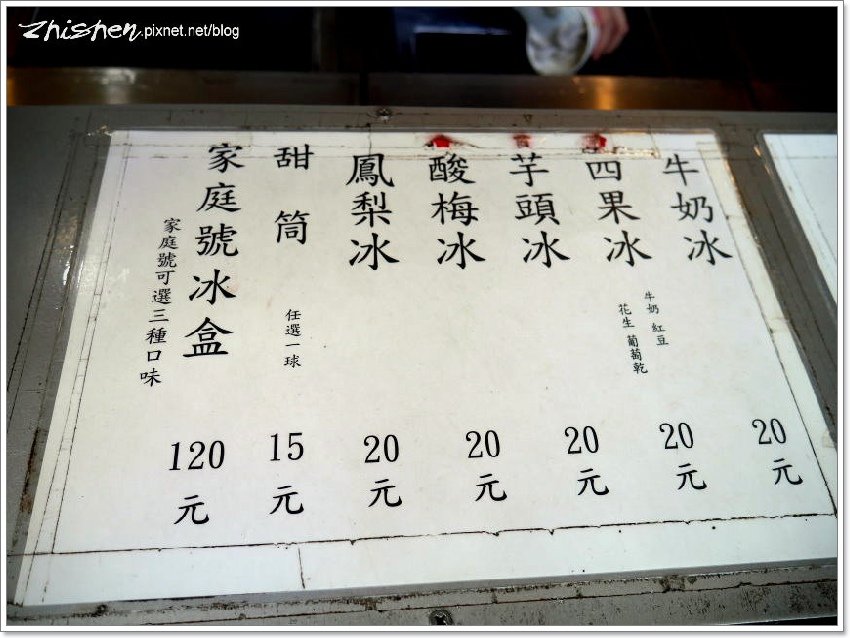 zhishen.pixnet.net/blog
牛奶冰
20元
四果冰
牛奶 紅豆
花生 葡萄乾
20元
芋頭冰
20元
酸梅冰
20元
鳳梨冰
20元
甜筒
任選一球
15元
家庭號冰盒
家庭號可選三種口味
120元